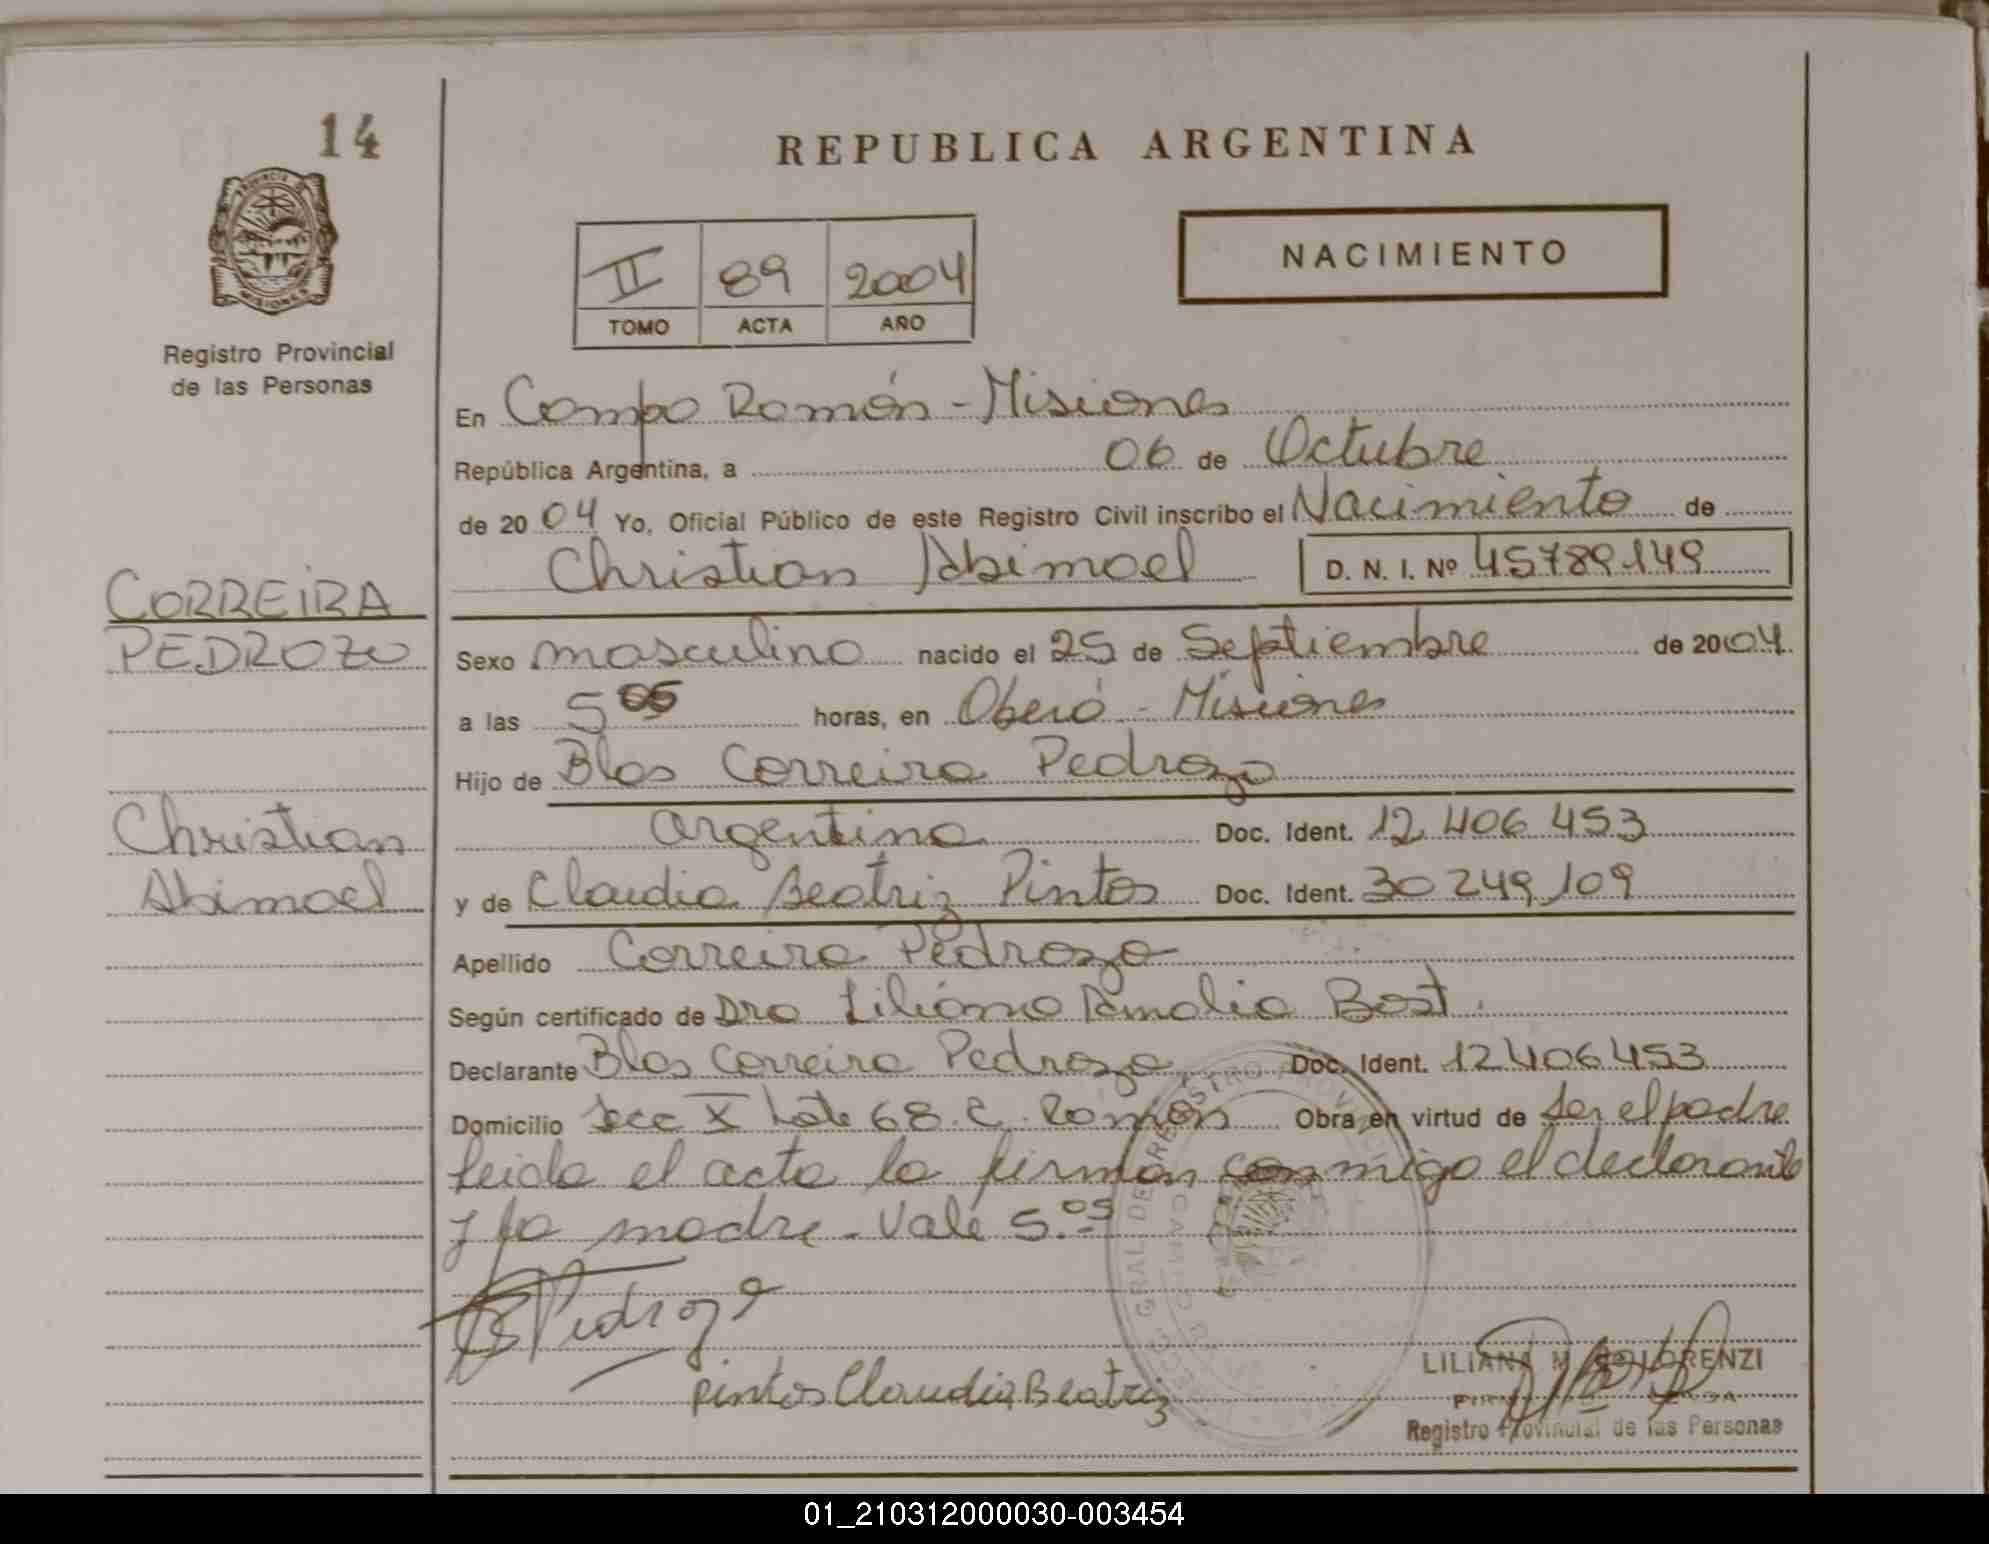 14
PROVINCIA DE
MISIONES
Registro Provincial
de las Personas
REPUBLICA ARGENTINA
II 89 2004
TOMO ACTA AÑO
NACIMIENTO
En Campo Ramón - Misiones
República Argentina, a 06 de Octubre
de 2004 Yo, Oficial Público de este Registro Civil inscribo el Nacimiento de
Christian Abimael D. N. I. Nº 45789149
CORREIRA
PEDROZO
Christian
Abimael
Sexo masculino nacido el 25 de Septiembre de 2004.
a las 5 05 horas, en Oberá - Misiones
Hijo de Blas Correira Pedrozo
argentina Doc. Ident. 12 406 453
y de Claudia Beatriz Pintos Doc. Ident. 30 249,109
Apellido Correira Pedrozo
Según certificado de Dra Liliana Amalia Bost.
Declarante Blas Correira Pedrozo Doc. Ident. 12406453
Domicilio Secc X Lote 68. C. Ramón Obra en virtud de ser el padre
leida el acta la firman conmigo el declarante
y la madre - Vale 5.05
Pedrozo
Pintos Claudia Beatriz
LILIANA M. LORENZI
Registro Provincial de las Personas
01_210312000030-003454